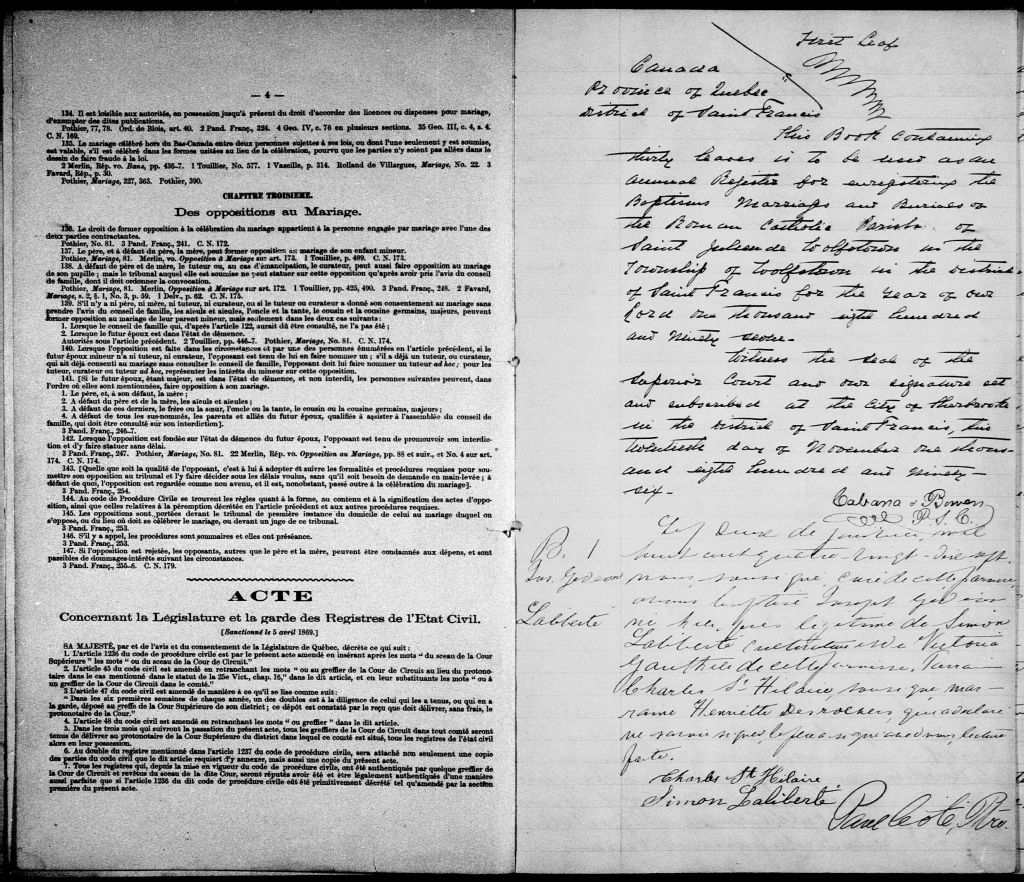 — 4 —
134. Il est loisible aux autorités, en possession jusqu'à présent du droit d'accorder des licences ou dispenses pour mariage,
d'exempter des dites publications.
Pothier, 77, 78. Ord. de Blois, art. 40. 2 Pand. Franç., 324. 4 Geo. IV, c. 76 en plusieurs sections. 35 Geo. III, c. 4, s. 4.
C. N. 169.
135. Le mariage célébré hors du Bas-Canada entre deux personnes sujettes à ses lois, ou dont l'une seulement y est soumise,
est valable, s'il est célébré dans les formes usitées au lieu de la célébration, pourvu que les parties n'y soient pas allées dans le
dessin de faire fraude à la loi.
2 Merlin, Rép. vo. Bans, pp. 436-7. 1 Touillier, No. 577. 1 Vazeille, p. 314. Rolland de Villargues, Mariage, No. 22. 3
Favard, Rép., p. 30.
Pothier, Mariage, 327, 363. Pothier, 390.
CHAPITRE TROISIEME.
Des oppositions au Mariage.
136. Le droit de former opposition à la célébration du mariage appartient à la personne engagée par mariage avec l'une des
deux parties contractantes.
Pothier, No. 81. 3 Pand. Franç., 241. C. N. 172.
137. Le père, et à défaut du père, la mère, peut former opposition au mariage de son enfant mineur.
Pothier, Mariage, 81. Merlin, vo. Opposition à Mariage sur art. 173. 1 Touillier, p. 489. C. N. 173.
138. A défaut de père et de mère, le tuteur ou, au cas d'émancipation, le curateur, peut aussi faire opposition au mariage
de son pupille; mais le tribunal auquel elle est soumise ne peut statuer sur cette opposition qu'après avoir pris l'avis du conseil
de famille, dont il doit ordonner la convocation.
Pothier, Mariage, 81. Merlin, Opposition à Mariage sur art. 172. 1 Touillier, pp. 425, 490. 3 Pand. Franç., 248. 2 Favard,
Mariage, s. 2, §. 1, No. 3, p. 59. 1 Delv., p. 62. C. N. 175.
139. S'il n'y a ni père, ni mère, ni tuteur, ni curateur, ou si le tuteur ou curateur a donné son consentement au mariage sans
prendre l'avis du conseil de famille, les aïeuls et aïeules, l'oncle et la tante, le cousin et la cousine germains, majeurs, peuvent
former opposition au mariage de leur parent mineur, mais seulement dans les deux cas suivants:
1. Lorsque le conseil de famille qui, d'après l'article 122, aurait dû être consulté, ne l'a pas été;
2. Lorsque le futur époux est dans l'état de démence.
Autorités sous l'article précédent. 2 Touillier, pp. 446-7. Pothier, Mariage, No. 81. C. N. 174.
140. Lorsque l'opposition est faite dans les circonstances et par une des personnes énumérées en l'article précédent, si le
futur époux mineur n'a ni tuteur, ni curateur, l'opposant est tenu de lui en faire nommer un; s'il a déjà un tuteur, ou curateur,
qui ait déjà consenti au mariage sans consulter le conseil de famille, l'opposant doit lui faire nommer un tuteur ad hoc; pour les
tuteur, curateur ou tuteur ad hoc, représenter les intérêts du mineur sur cette opposition.
141. [Si le futur époux, étant majeur, est dans l'état de démence, et non interdit, les personnes suivantes peuvent, dans
l'ordre où elles sont mentionnées, faire opposition à son mariage.
1. Le père, et, à son défaut, la mère;
2. A défaut du père et de la mère, les aïeuls et aïeules;
3. A défaut de ces derniers, le frère ou la sœur, l'oncle ou la tante, le cousin ou la cousine germains, majeurs;
4. A défaut de tous les sus-nommés, les parents et alliés du futur époux, qualifiés à assister à l'assemblée du conseil de
famille, qui doit être consulté sur son interdiction].
3 Pand. Franç., 246-7.
142. Lorsque l'opposition est fondée sur l'état de démence du futur époux, l'opposant est tenu de promouvoir son interdic-
tion et d'y faire statuer sans délai.
3 Pand. Franç., 247. Pothier, Mariage, No. 81. 22 Merlin, Rép. vo. Opposition au Mariage, pp. 88 et suiv., et No. 4 sur art.
174. C. N. 174.
143. [Quelle que soit la qualité de l'opposant, c'est à lui à adopter et suivre les formalités et procédures requises pour sou-
mettre son opposition au tribunal et l'y faire décider sous les délais voulus, sans qu'il soit besoin de demande en main-levée; à
défaut de quoi, l'opposition est regardée comme non avenu, et il est, nonobstant, passé outre à la célébration du mariage].
3 Pand. Franç., 254.
144. Au code de Procédure Civile se trouvent les règles quant à la forme, au contenu et à la signification des actes d'oppo-
sition, ainsi que celles relatives à la péremption décrétée en l'article précédent et aux autres procédures requises.
145. Les oppositions sont portées devant le tribunal de première instance du domicile de celui au mariage duquel on
s'oppose, ou du lieu où doit se célébrer le mariage, ou devant un juge de ce tribunal.
3 Pand. Franç., 253.
146. S'il y a appel, les procédures sont sommaires et elles ont préséance.
3 Pand. Franç., 253.
147. Si l'opposition est rejetée, les opposants, autres que le père et la mère, peuvent être condamnés aux dépens, et sont
passibles de dommages-intérêts suivant les circonstances.
3 Pand. Franç., 255-6. C. N. 179.
ACTE
Concernant la Législature et la garde des Registres de l'Etat Civil.
[Sanctionné le 5 avril 1869.]
SA MAJESTÉ, par et de l'avis et du consentement de la Législature de Québec, décrète ce qui suit:
1. L'article 1236 du code de procédure civile est par le présent acte amendé en insérant après les mots " du sceau de la Cour
Supérieure " les mots " ou du sceau de la Cour de Circuit."
2. L'article 45 du code civil est amendé en retranchant les mots " ou au greffier de la Cour de Circuit au lieu du protono-
taire dans le cas mentionné dans le statut de la 25e Vict., chap. 16," dans le dit article, et en leur substituant les mots " ou à
un greffier de la Cour de Circuit dans le comté."
3 L'article 47 du code civil est amendé de manière à ce qu'il se lise comme suit:
" Dans les six premières semaines de chaque année, un des doubles est à la diligence de celui qui les a tenus, ou qui en a
la garde, déposé au greffe de la Cour Supérieure de son district; ce dépôt est constaté par le reçu que doit délivrer, sans frais, le
protonotaire de la Cour."
4. L'article 48 du code civil est amendé en retranchant les mots " ou greffier " dans le dit article.
5. Dans les trois mois qui suivront la passation du présent acte, tous les greffiers de la Cour de Circuit dans tout comté seront
tenus de délivrer au protonotaire de la Cour Supérieure du district dans lequel ce comté est situé, tous les registres de l'état civil
alors en leur possession.
6. Au double du registre mentionné dans l'article 1237 du code de procédure civile, sera attaché non seulement une copie
des parties du code civil que le dit article requiert d'y annexer, mais aussi une copie du présent acte.
7. Tous les registres qui, depuis la mise en vigueur du code de procédure civile, ont été authentiqués par quelque greffier de
la Cour de Circuit et revêtus du sceau de la dite Cour, seront réputés avoir été et être légalement authentiqués d'une manière
aussi parfaite que si l'article 1236 du dit code de procédure eût été primitivement décrété tel qu'amendé par la section
première du présent acte.
First Leaf
Canada
Province of Quebec
District of Saint Francis
This Book Containing
thirty leaves is to be used as an
annual Register for enregistering the
Baptisms Marriages and Burials of
the Roman Catholic Parish of
Saint Julien de Wolfestown in the
Township of Wolfestown in the District
of Saint Francis for the Year of our
Lord one thousand eight hundred
and Ninety seven-
Witness the seal of the
Superior Court and our signature set
and subscribed at the City of Sherbrooke
in the District of Saint Francis, this
twentieth day of November one thous-
and eight hundred and Ninety
six-
Cabana & Bowen
P. S. C.
B. 1
Jos. Gédéon
Laliberté
Le deux de janvier, mil
huit cent quatre-vingt-dix sept
nous, soussigné, curé de cette paroisse
avons baptisé Joseph Gédéon
né hier, fils légitime de Simon
Laliberté cultivateur et de Victoria
Gauthier de cette paroisse. Parrain
Charles St Hilaire, soussigné, mar-
raine Henriette Desrochers, qui a déclaré
ne savoir signer le père a signé avec nous, lecture
faite.
Charles St Hilaire
Simon Laliberté
Paul Coté, Ptre.